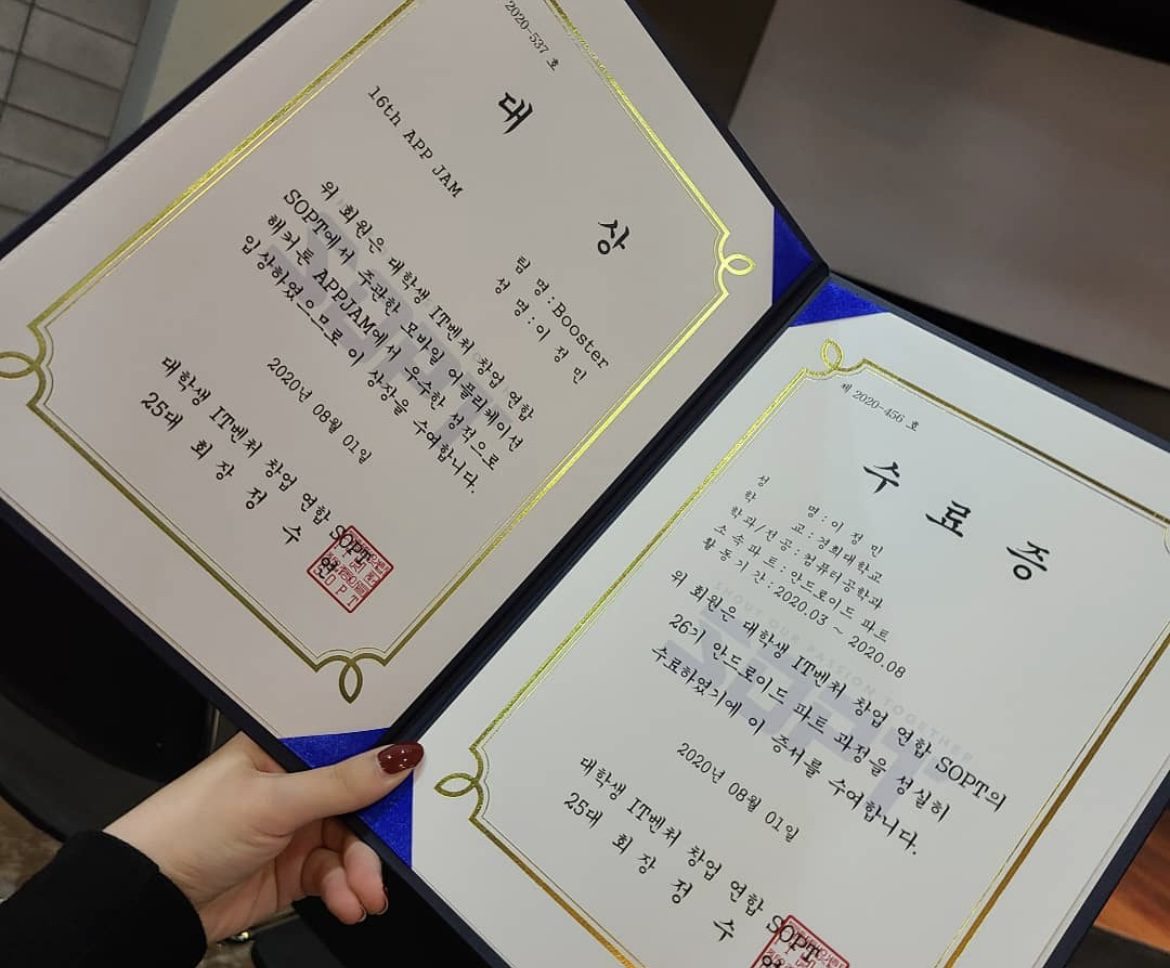 2020-537 호
대 상
16th APP JAM
팀 명:Booster
성 명:이 정 민
위 회원은 대학생 IT벤처 창업 연합
SOPT에서 주관한 모바일 어플리케이션
해커톤 APPJAM에서 우수한 성적으로
입상하였으므로 이 상장을 수여합니다.
2020년 08월 01일
대학생 IT벤처 창업 연합 SOPT
25대 회 장 정 수 연
SOPT
제 2020-456 호
수 료 증
성 명:이 정 민
학 교:경희대학교
학과/전공:컴퓨터공학과
소 속 파 트:안드로이드 파트
활 동 기 간:2020.03 ~ 2020.08
위 회원은 대학생 IT벤처 창업 연합 SOPT의
26기 안드로이드 파트 과정을 성실히
수료하였기에 이 증서를 수여합니다.
SHOUT OUR PASSION TOGETHER
SOPT
2020년 08월 01일
대학생 IT벤처 창업 연합 SOPT
25대 회 장 정 수 연